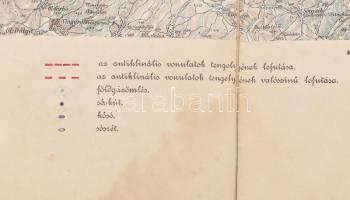 az antiklinális vonulatok tengelyének lefutása.
az antiklinális vonulatok tengelyének valószínű lefutása.
földgázömlés.
sóskút.
kősó.
sósrét.
darabanth